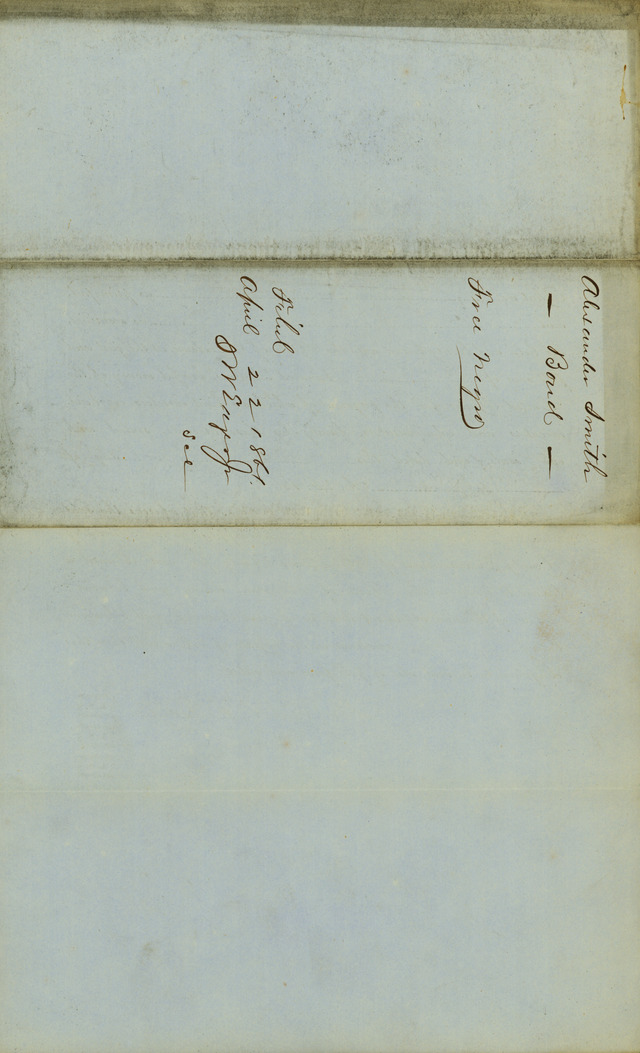 Alexander Smith
— Bond —
Free Negro
Filed
April 22 1861.